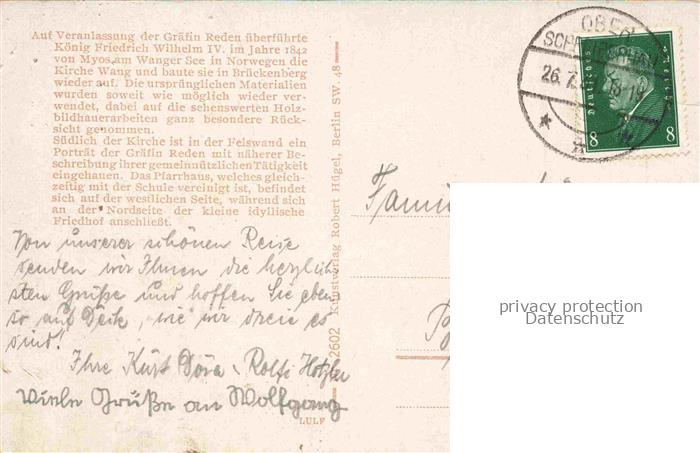 Auf Veranlassung der Gräfin Reden überführte
König Friedrich Wilhelm IV. im Jahre 1842
von Myos am Wanger See in Norwegen die
Kirche Wang und baute sie in Brückenberg
wieder auf. Die ursprünglichen Materialien
wurden soweit wie möglich wieder ver-
wendet, dabei auf die sehenswerten Holz-
bildhauerarbeiten ganz besondere Rück-
sicht genommen.
Südlich der Kirche ist in der Felswand ein
Porträt der Gräfin Reden mit näherer Be-
schreibung ihrer gemeinnützlichen Tätigkeit
eingehauen. Das Pfarrhaus, welches gleich-
zeitig mit der Schule vereinigt ist, befindet
sich auf der westlichen Seite, während sich
an der Nordseite der kleine idyllische
Friedhof anschließt.
Von unserer schönen Reise
senden wir Ihnen die herzlich-
sten Grüße und hoffen Sie eben
so auf Deck, wie wir dreie es
sind!
Ihre Kurt Dora Rolfi
Viele Grüße an Wolfgang
LULF
2602 Kunstverlag Robert Hügel, Berlin SW. 48
OBER
26.7.
Deutsches Reich
8 8
privacy protection
Datenschutz